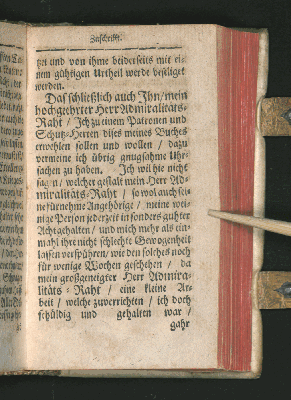 Zuschrifft.
tzt und von ihme beiderseits mit ei-
nem gühtigen Urtheil werde beseliget
werden.
Das schließlich auch Ihn/ mein
hochgeehrter Herr Admiralitäts-
Raht / Ich zu einem Patronen und
Schutz-Herren dises meines Buches
erwehlen sollen und wollen / dazu
vermeine ich übrig gnugsahme Uhr-
sachen zu haben. Ich wil hie nicht
sagen/ welcher gestalt mein Herr Ad-
miralitäts-Raht / so wol auch sei-
ne fürnehme Angehörige / meine wei-
nige Person jederzeit in sonders guhter
Acht gehalten / und mich mehr als ein-
mahl ihre nicht schlechte Gewogenheit
lassen verspühren/ wie den solches noch
für wenige Wochen geschehen / da
mein großgeneigter Herr Admira-
litäts-Raht / eine kleine Ar-
beit / welche zuverrichten / ich doch
schüldig und gehalten war /
gahr